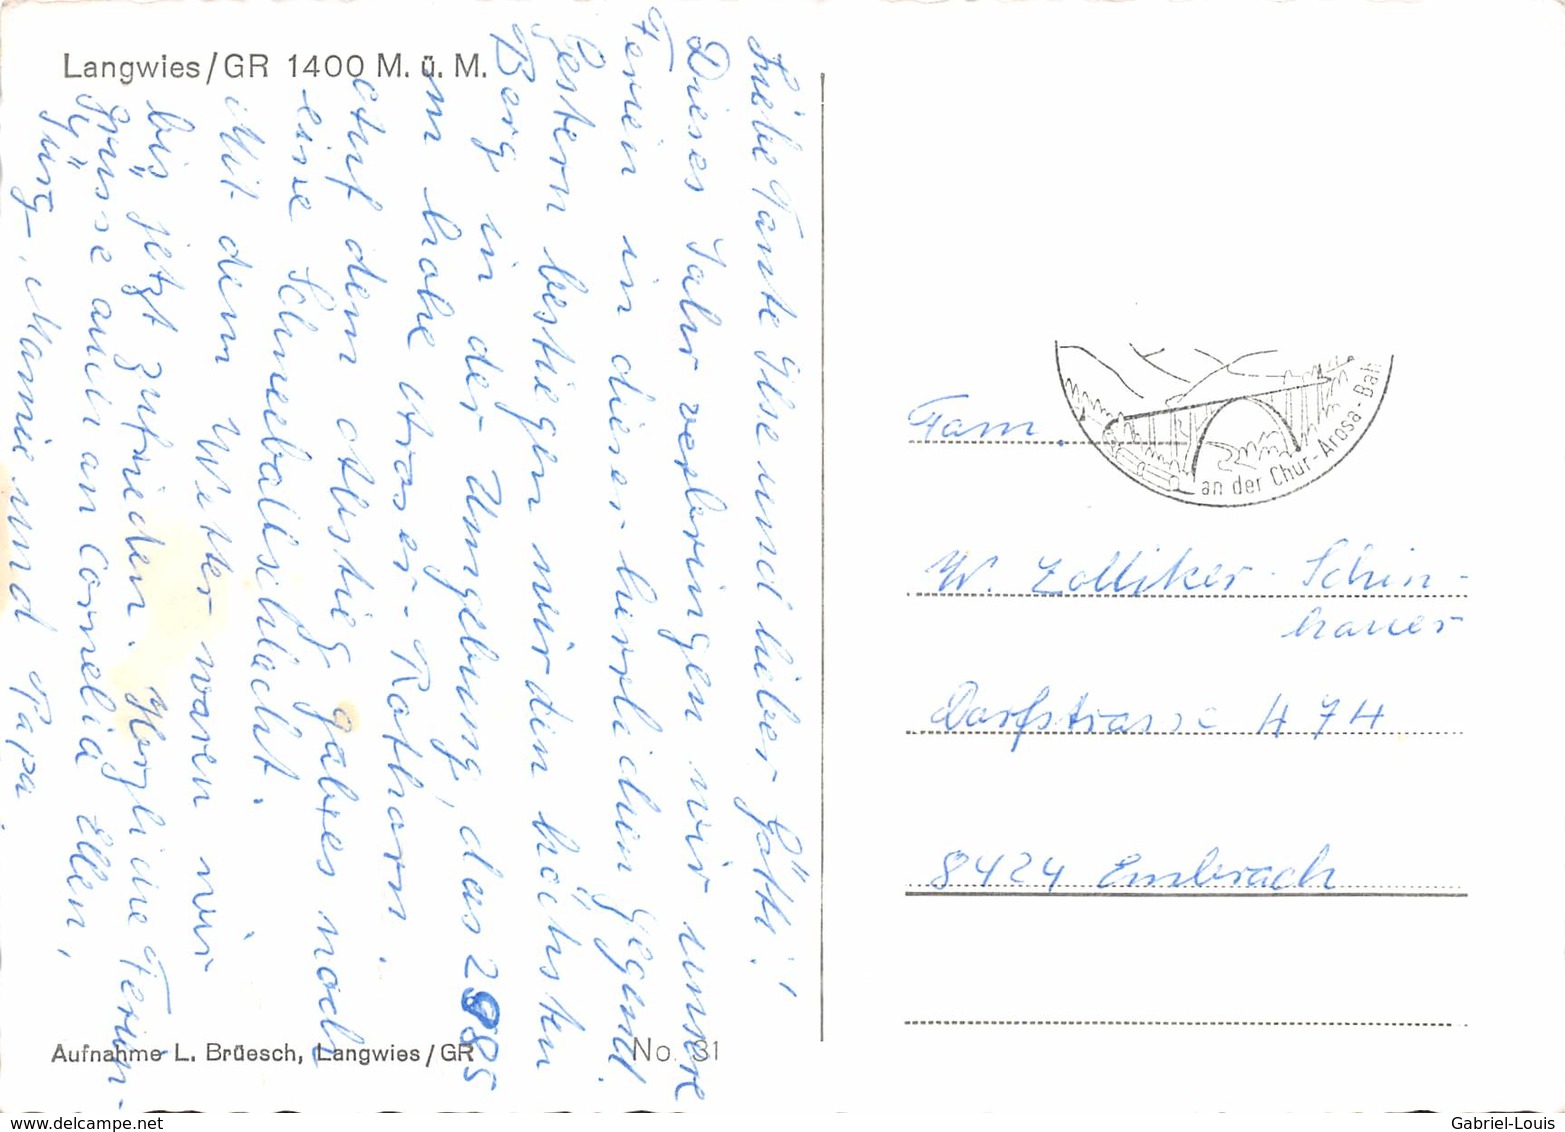 Langwies/GR 1400 M. ü. M.
Liebe Tante Ilse und lieber Götti!
Dieses Jahr verbringen wir unsere
Ferien in dieser herrlichen Gegend.
Gestern bestiegen wir den höchsten
Berg in der Umgebung, das 2985
m hohe Aroser-Rothorn.
Auf dem Abstieg gab es noch
eine Schneeballschlacht.
Mit dem Wetter waren wir
bis jetzt zufrieden. Herzliche Ferien-
grüsse auch an Cornelia Ellen,
Jürg, Mamie und Papa
Aufnahme L. Brüesch, Langwies/GR
No. 31
an der Chur-Arosa-Bah
Fam.
W. Zolliker-Schin-
hauer
Dorfstrasse 474
8424 Embrach
delcampe.net
Gabriel-Louis